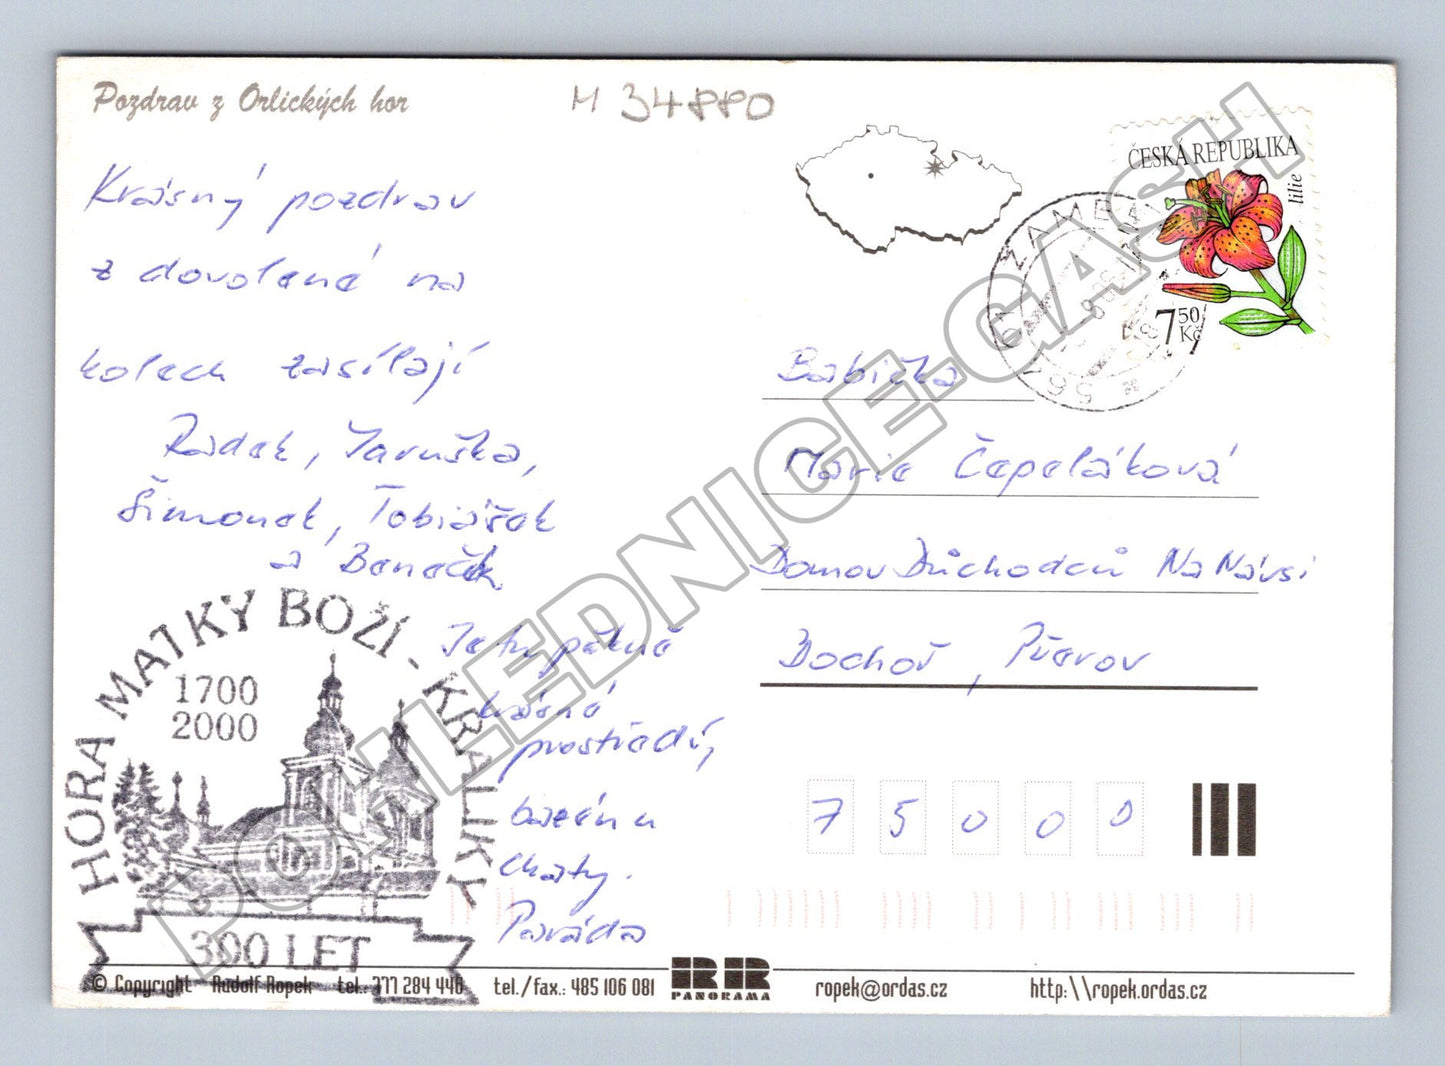 Pozdrav z Orlických hor
M 34880
Krásný pozdrav
z dovolené na
kolech zasílají
Radek, Jaruška,
Šimonek, Tobiášek
a Beneček
Je tu pěkně
krásné
prostředí,
bazén u
chaty.
Paráda
ČESKÁ REPUBLIKA
lilie
7 50 Kč
567 ZAMBERK
Babička
Marie Čepeláková
Domov Důchodců Na Návsi
Bochoř, Přerov
7 5 0 0 0
HORA MATKY BOŽÍ - KRÁLÍKY
1700
2000
300 LET
© Copyright Rudolf Ropek tel.: 777 284 446 tel./fax.: 485 106 081 RR PANORAMA ropek@ordas.cz http:\\ropek.ordas.cz
POHLEDNICE-GASH